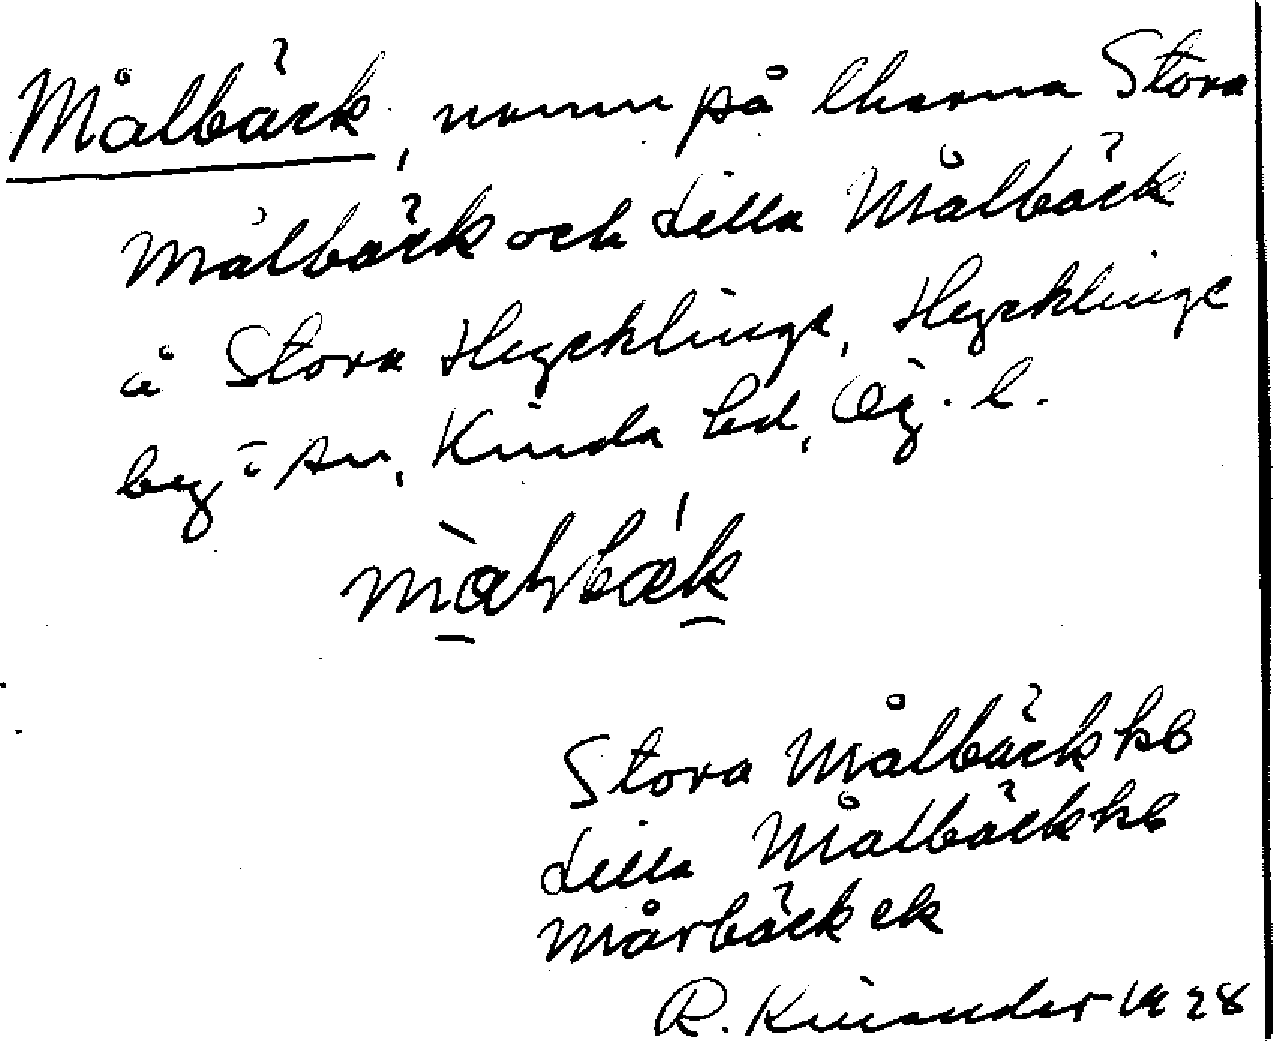 Målbäck, namn på lharna Stora
Målbäck och Lilla Målbäck
å Stora Hycklinge, Hycklinge
by o sn, Kinda hd, Ög. l.
Stora Målbäck hb
Lilla Målbäck hb
Mårbäck ek
R. Kinander 1928